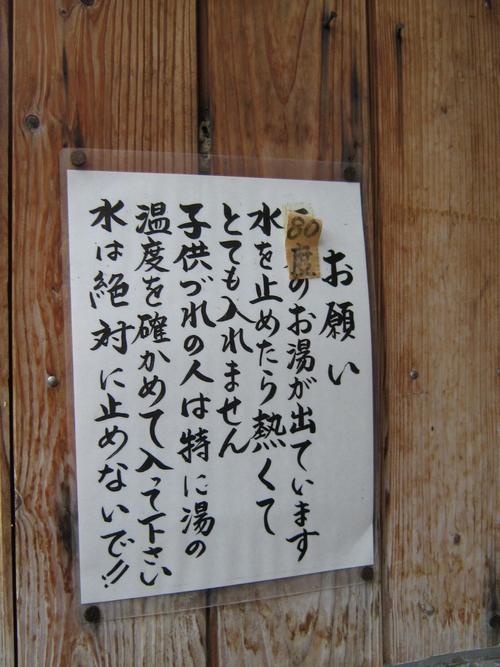 お願い
80度のお湯が出ています
水を止めたら熱くて
とても入れません
子供づれの人は特に湯の
温度を確かめて入って下さい
水は絶対に止めないで!!